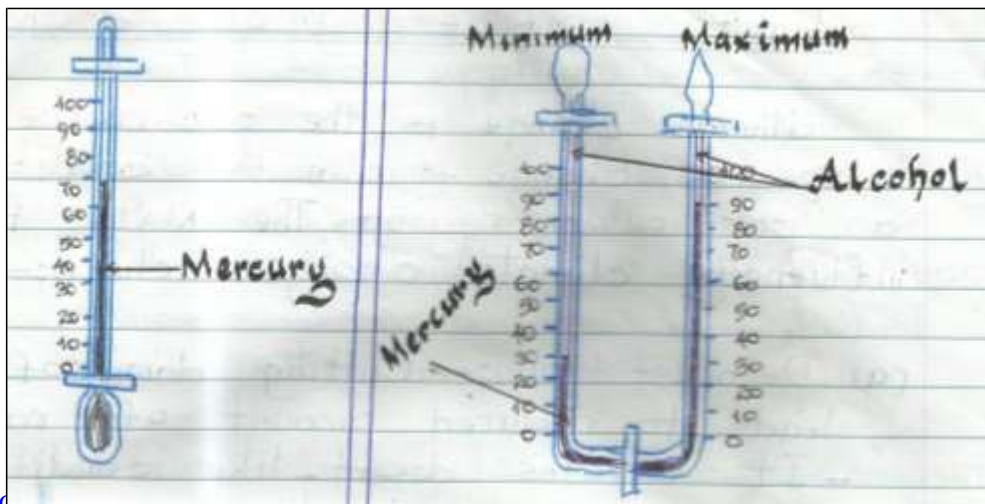 100
90
80
70
60
50
40
30
20
10
0
Mercury
Minimum
Maximum
Alcohol
Mercury
100
90
80
70
60
50
40
30
20
10
0
100
90
80
70
60
50
40
30
20
10
0